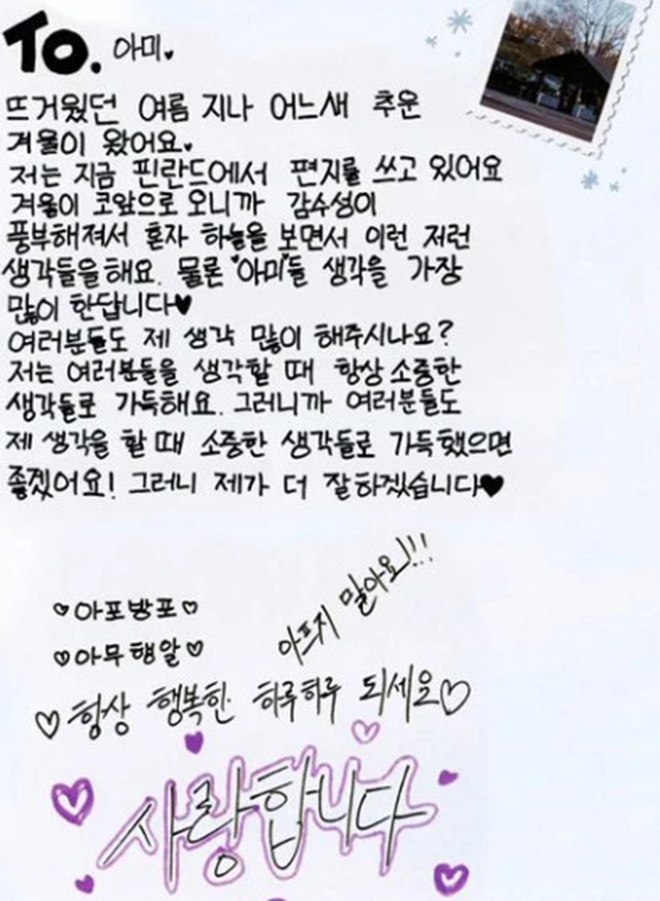 TO. 아미♥
뜨거웠던 여름 지나 어느새 추운
겨울이 왔어요♥
저는 지금 핀란드에서 편지를 쓰고 있어요
겨울이 코앞으로 오니까 감수성이
풍부해져서 혼자 하늘을 보면서 이런 저런
생각들을해요. 물론 "아미"들 생각을 가장
많이 한답니다♥
여러분들도 제 생각 많이 해주시나요?
저는 여러분들을 생각할 때 항상 소중한
생각들로 가득해요. 그러니까 여러분들도
제 생각을 할 때 소중한 생각들로 가득했으면
좋겠어요! 그러니 제가 더 잘하겠습니다♥
♡아포방포♡
아프지 말아요!!!
♡아무행알♡
♡항상 행복한 하루하루 되세요♡
사랑합니다